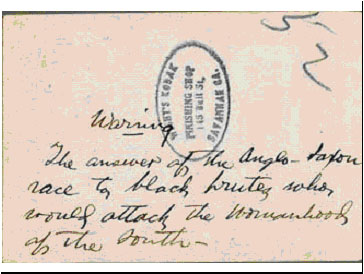 5
2
KODAK
FINISHING SHOP
SAVANNAH GA.
Warning
The answer of the Anglo-Saxon
race to black brutes who
would attack the Womanhood
of the South-